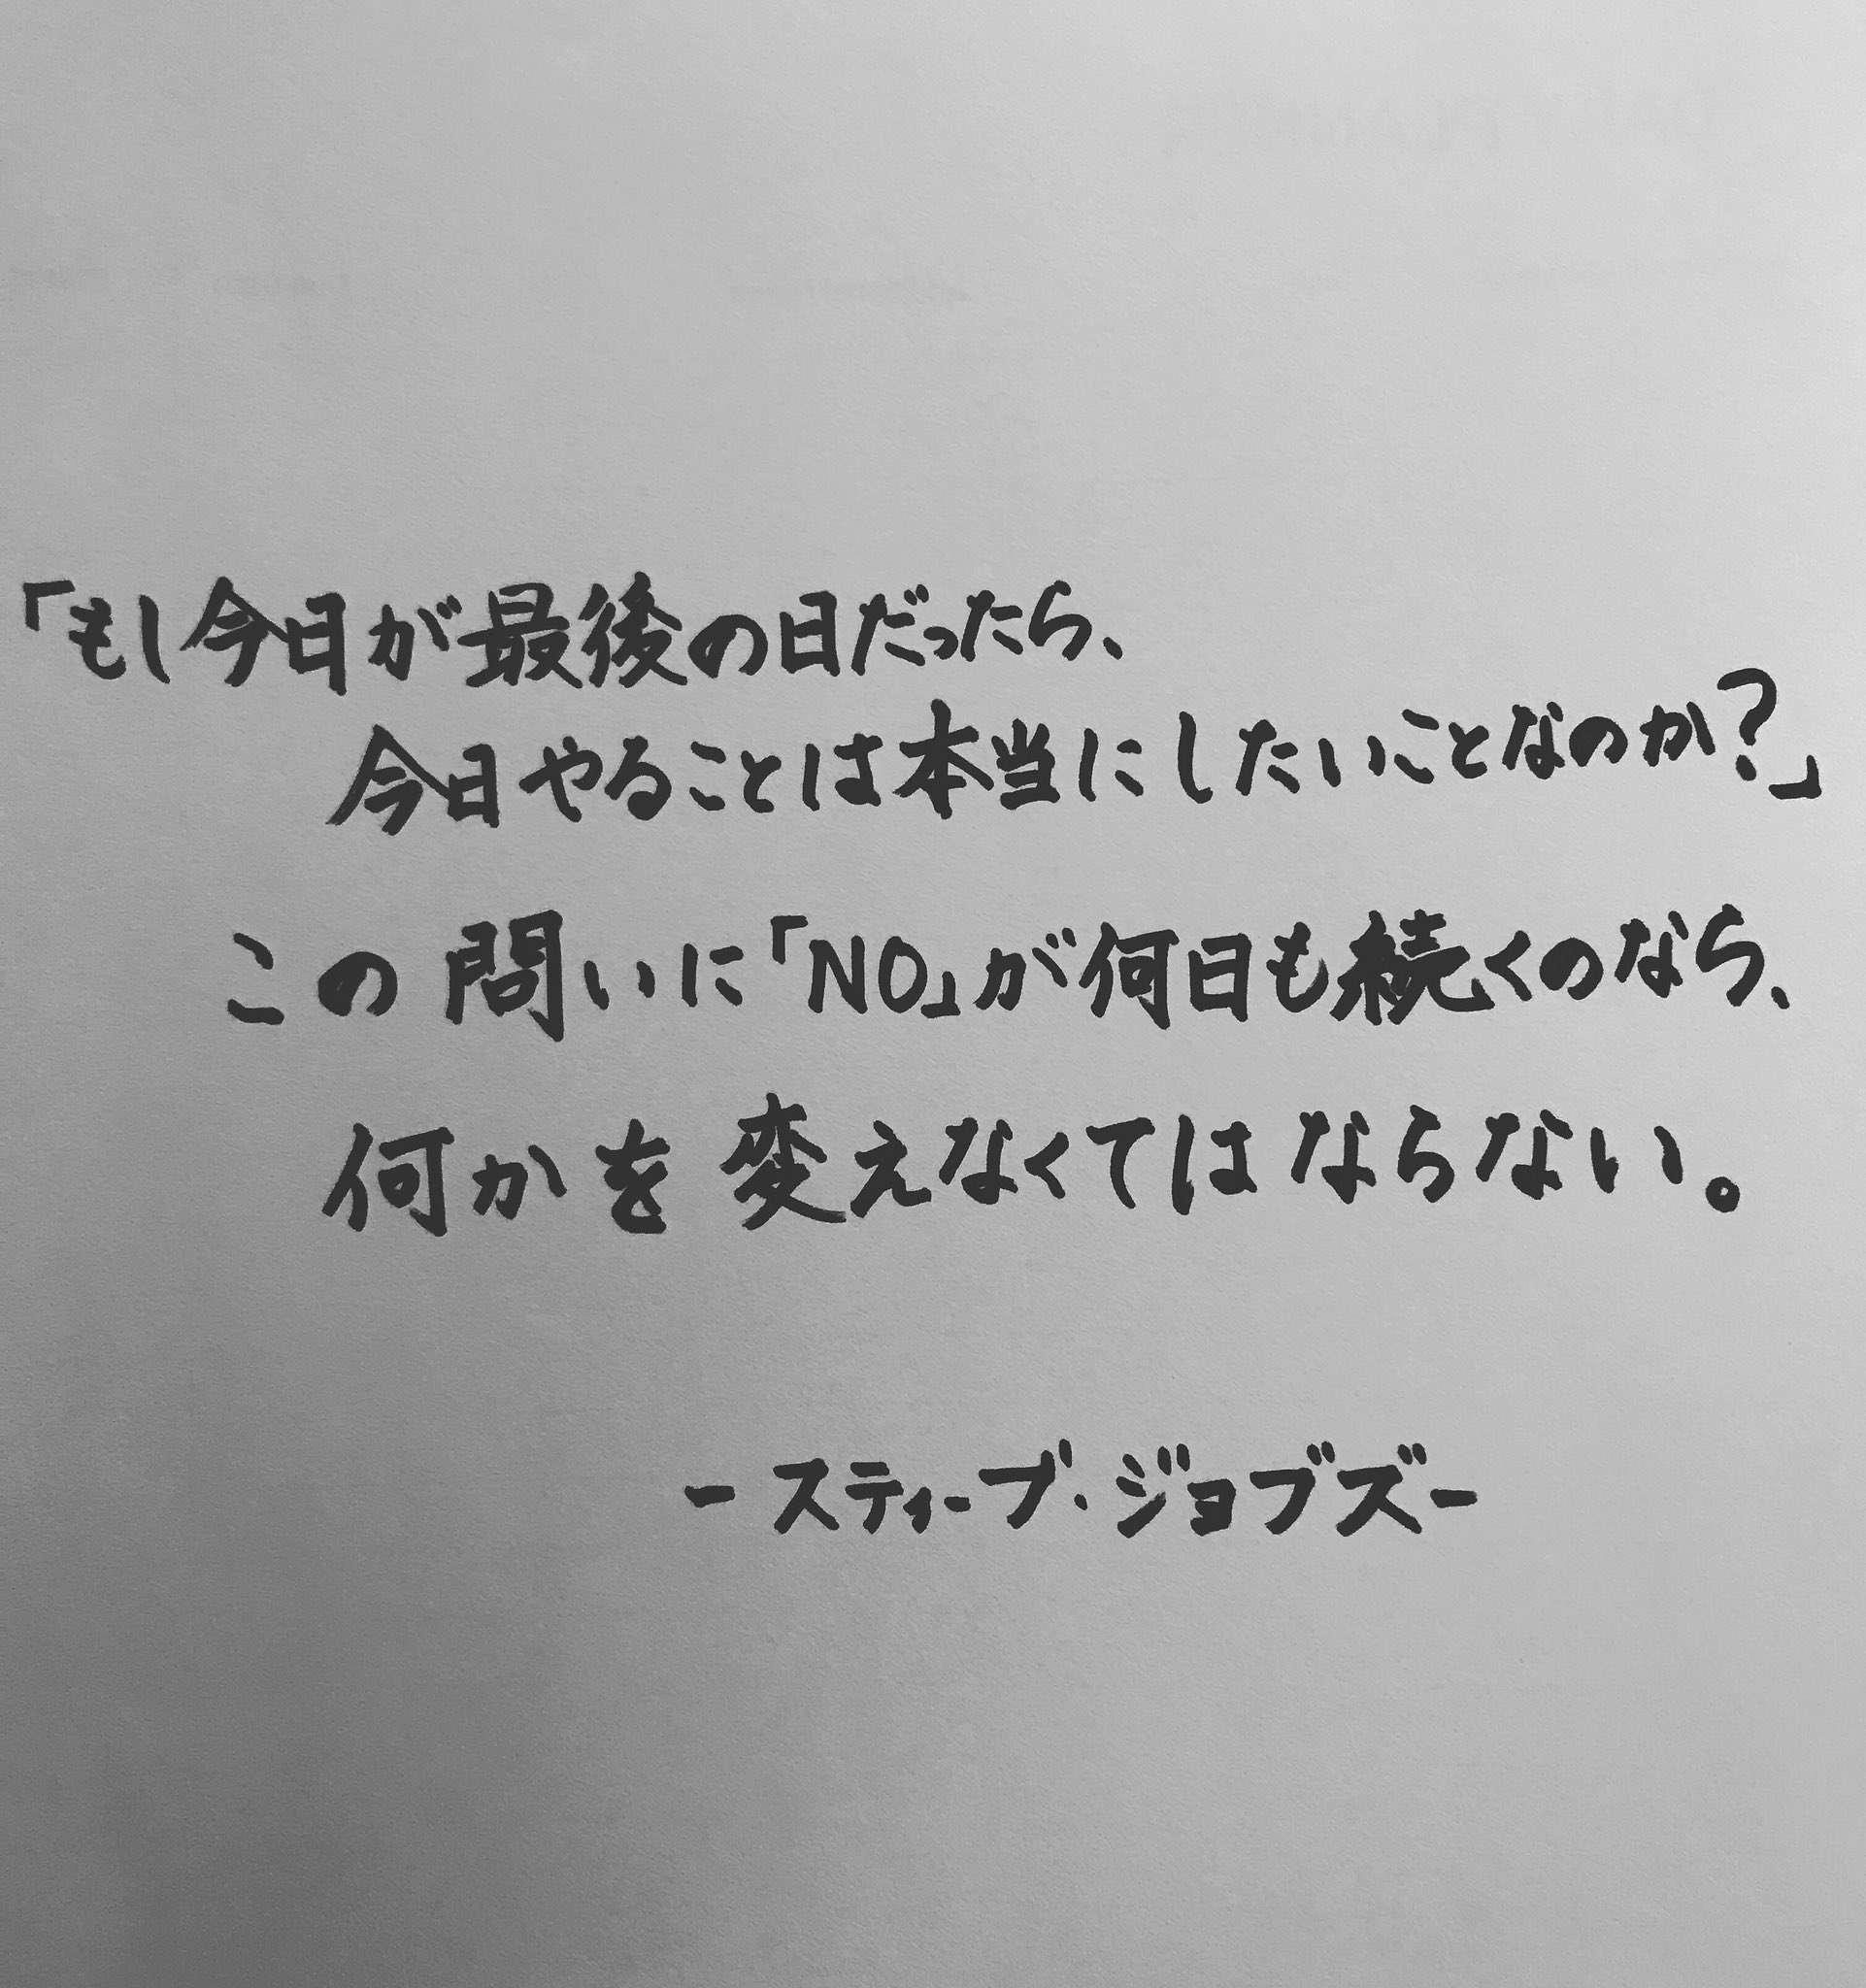 「もし今日が最後の日だったら、
今日やることは本当にしたいことなのか?」
この問いに「NO」が何日も続くのなら、
何かを変えなくてはならない。
-スティーブ・ジョブズ-